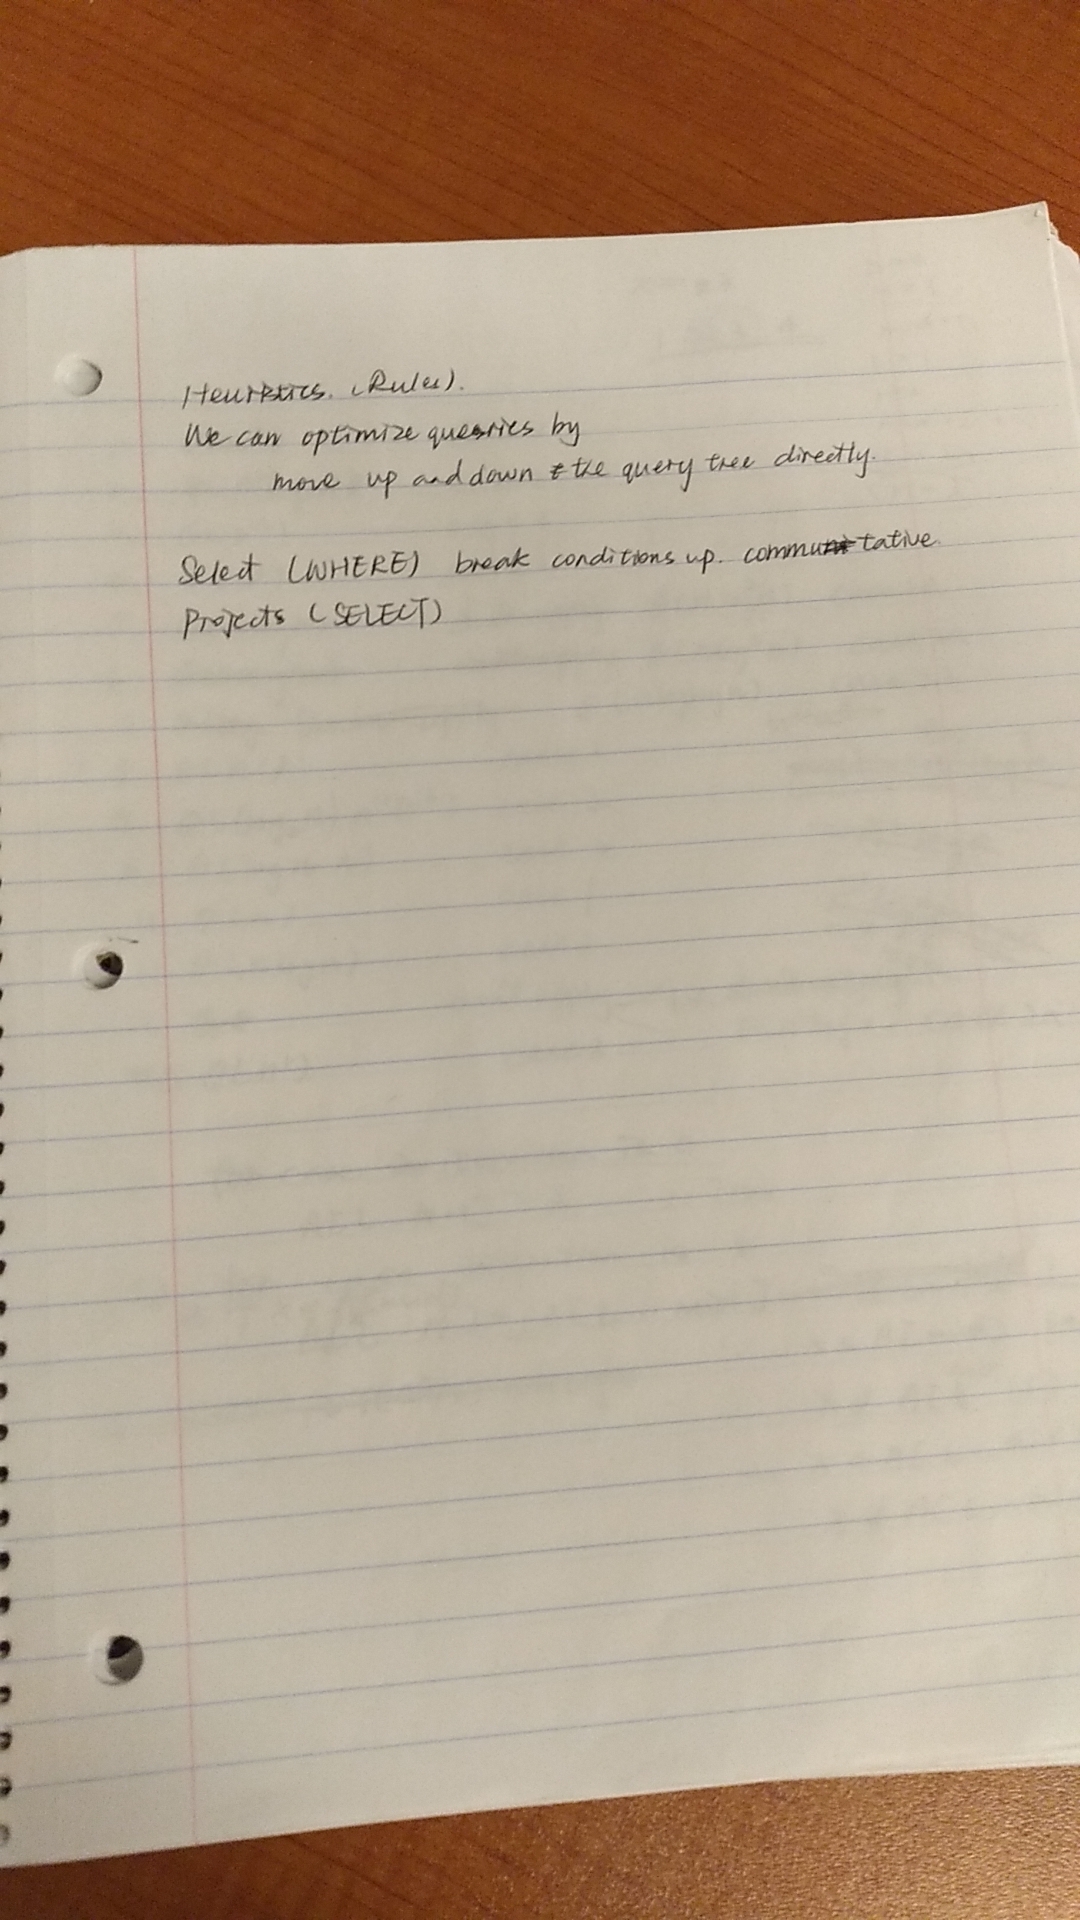 Heuristics. (Rules).
We can optimize queries by
move up and down the query tree directly.
Select (WHERE) break conditions up. commutative.
Projects (SELECT)